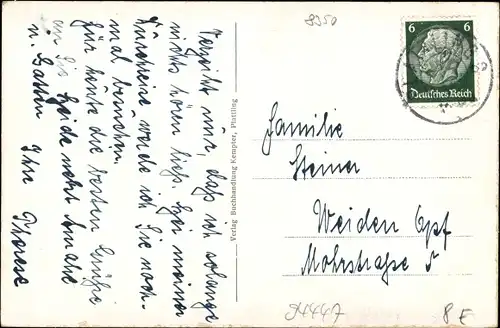 8350
Verzeiht mir, daß ich solange
nichts hören ließ. Bei meiner
Durchreise werde ich Sie noch-
mal besuchen.
Für heute die besten Grüße
an Sie beide nebst Amalie
u. Gatten Ihre Therese
Verlag Buchhandlung Kempter, Plattling
6 6
Deutsches Reich
Familie
Steiner
Weiden Opf
Mohrstraße 5
94447
8 E